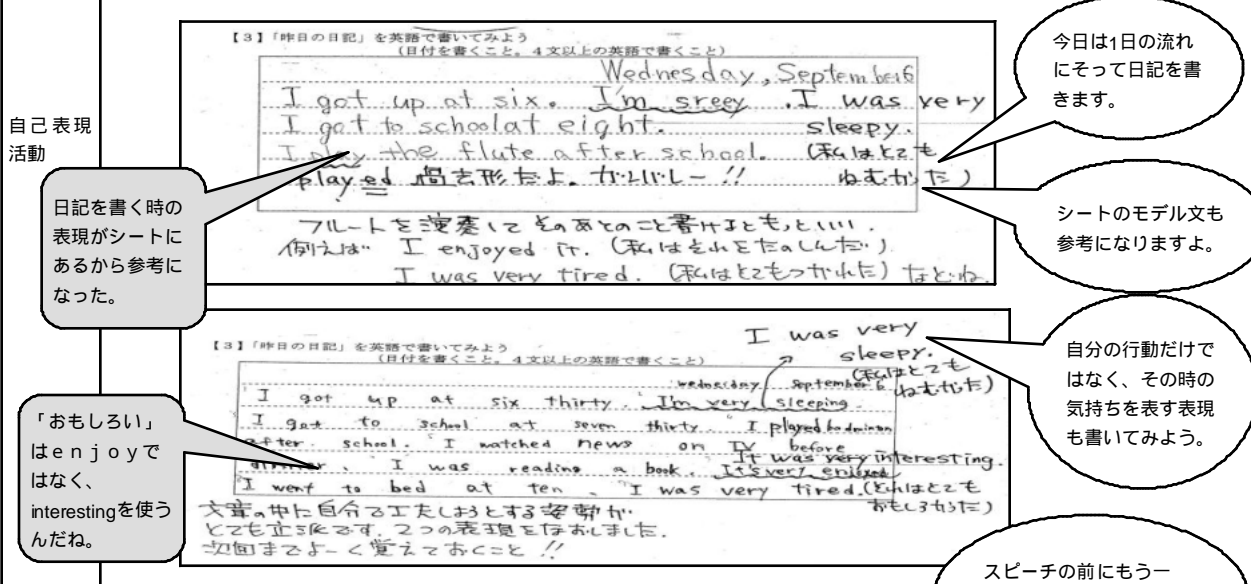 自己表現
活動
【3】「昨日の日記」を英語で書いてみよう
(日付を書くこと。4文以上の英語で書くこと)
Wednesday, September 6
I got up at six. I'm sreey . I was very
I got to schoolat eight. sleepy.
I play the flute after school. (私はとても
played 過去形だよ。おしい!! ねむかった)
フルートを演奏してそのあとのこと書けるともっといい.
例えば I enjoyed it. (私はそれをたのしんだ)
I was very tired. (私はとてもつかれた) などね.
日記を書く時の
表現がシートに
あるから参考に
なった。
今日は1日の流れ
にそって日記を書
きます。
シートのモデル文も
参考になりますよ。
【3】「昨日の日記」を英語で書いてみよう
(日付を書くこと。4文以上の英語で書くこと)
I was very
sleepy.
(私はとても
ねむかった)
wednesday September 6
I got up at six thirty. I'm very sleeping.
I got to school at seven thirty. I played badminton
after school. I watched news on TV before
It was very interesting.
dinner. I was reading a book. It's very enjoyed
I went to bed at ten. I was very tired. (それはとても
おもしろかった)
文章の中に自分で工夫しようとする姿勢が
とても立派です. 2つの表現をなおしました.
次回までよーく覚えておくこと!!
「おもしろい」
はenjoyで
はなく、
interestingを使う
んだね。
自分の行動だけで
はなく、その時の
気持ちを表す表現
も書いてみよう。
スピーチの前にもう一